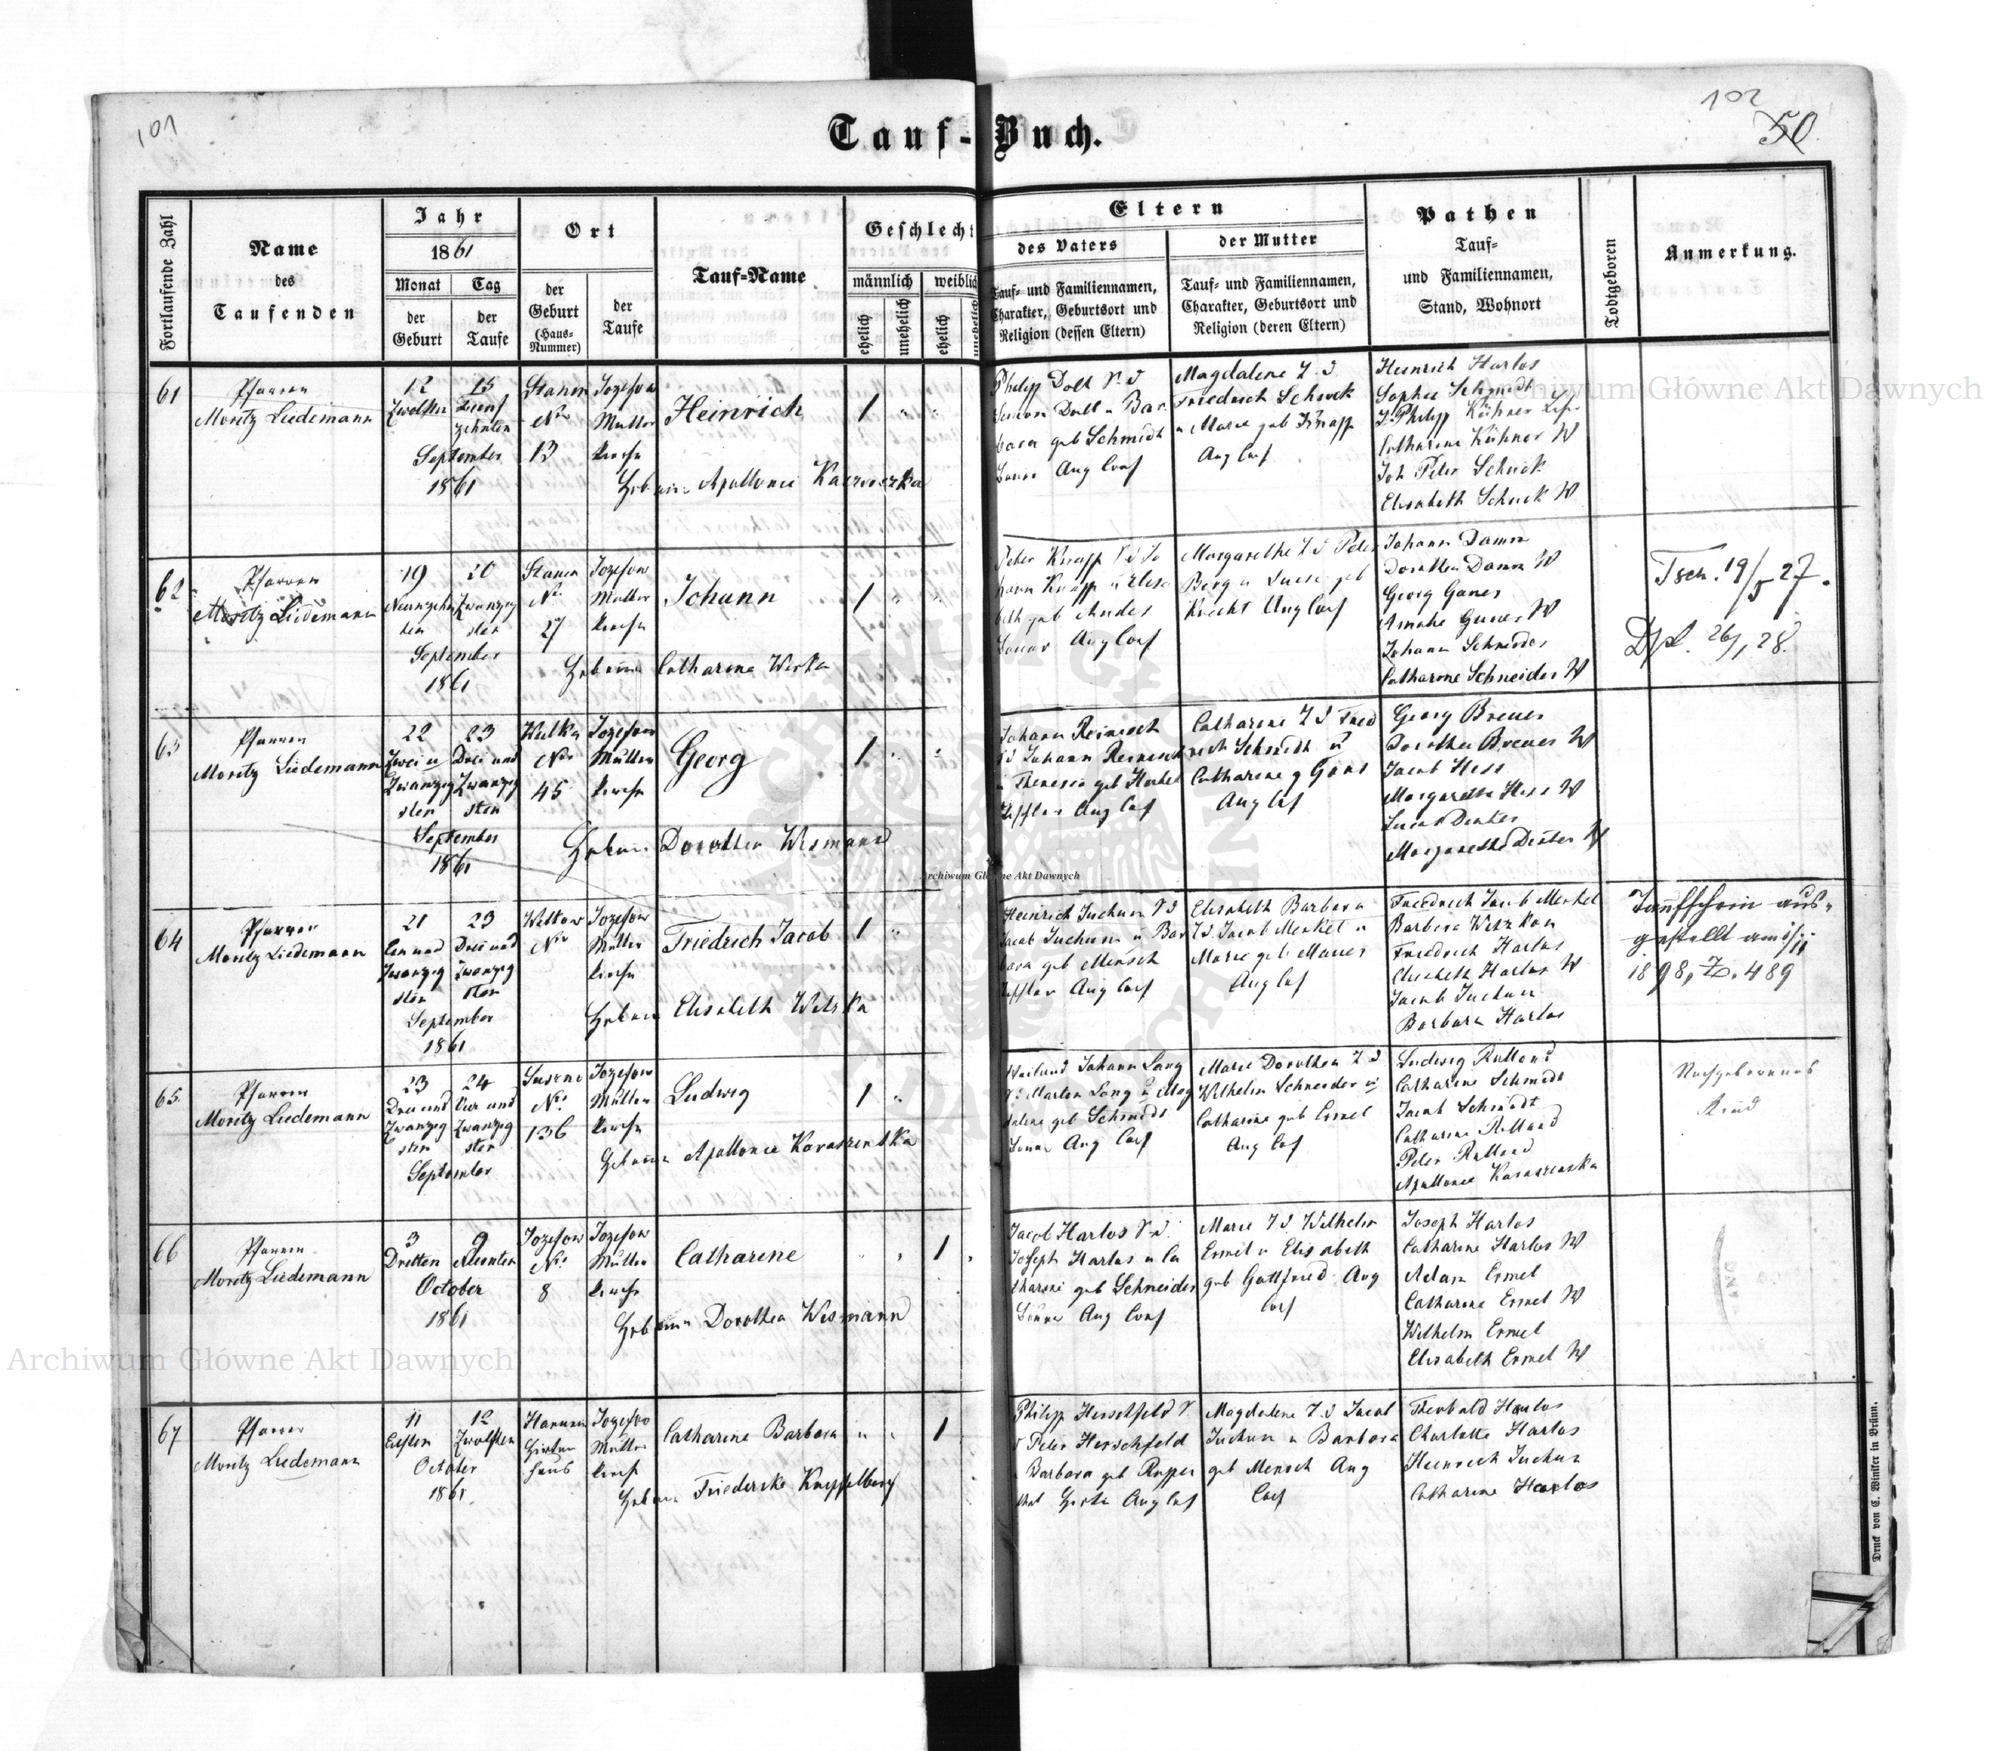 101
102
50
Tauf-Buch.
Fortlaufende Zahl
Name
des
Taufenden
Jahr
1861
Monat
Tag
der
Geburt
der
Taufe
Ort
der
Geburt
(Haus-
Nummer)
der
Taufe
Tauf-Name
Geschlecht
männlich
weiblich
ehelich
unehelich
ehelich
unehelich
Eltern
des Vaters
Tauf- und Familiennamen,
Charakter, Geburtsort und
Religion (dessen Eltern)
der Mutter
Tauf- und Familiennamen,
Charakter, Geburtsort und
Religion (deren Eltern)
Pathen
Tauf-
und Familiennamen,
Stand, Wohnort
Todtgeboren
Anmerkung.
61
Pfarrer
Moritz Liedemann
12
Zwölften
15
Fünf
zehnten
September
1861
Stanin
No
13
Jozefow
Mutter
kirche
Heinrich
1
Hebamme Apollonie
Philipp Doll
Simon Doll u Bar
bara geb Schmidt
Bauer Aug Conf
Magdalene T d
Friedrich Schick
u Marie geb Knapp
Aug Conf
Heinrich Harlos
Sophie Schmidt
Philipp Kühner
Catharine Kühner W
Joh Peter Schick
Elisabeth Schick W
62
Pfarrer
Moritz Liedemann
19
Neunzehn
ten
20
Zwanzig
sten
September
1861
Stanin
No
27
Jozefow
Mutter
kirche
Johann
1
Hebamme Catharine
Peter Knapp S d Jo
hann Knapp u Elisa
beth geb Andes
Bauer Aug Conf
Margarethe T d Peter
Berg u Luise geb
Knecht Aug Conf
Johann Damm
Dorothea Damm W
Georg Ganes
Amalie Ganes W
Johann Schneider
Catharine Schneider W
Tsch. 19/5 27.
Dpl. 26/1 28.
63
Pfarrer
Moritz Liedemann
22
Zwei u
Zwanzig
sten
23
Drei und
Zwanzig
sten
September
1861
Wulka
No
45
Jozefow
Mutter
kirche
Georg
1
Hebamme Dorothea Wismann
Johann Reinisch
S d Johann Reinisch
u Theresia geb
Aug Conf
Catharine T d Fried
rich Schmidt u
Catharine g Gans
Aug Conf
Georg Breues
Dorothea Breues W
Jacob Hess
Margaretha Hess W
Lucas
Margaretha W
64
Pfarrer
Moritz Liedemann
21
Ein und
Zwanzig
sten
23
Drei und
Zwanzig
sten
September
1861
No
Jozefow
Mutter
kirche
Friedrich Jacob
1
Hebamme Elisabeth
Heinrich Juchum S d
Jacob Juchum u Bar
bara geb Mensch
Aug Conf
Elisabeth Barbara
T d Jacob Merkel u
Marie geb Maues
Aug Conf
Friedrich Jacob Merkel
Barbara
Friedrich Harlos
Elisabeth Harlos W
Jacob Juchum
Barbara Harlos
Taufschein aus-
gestellt am
1898, Z. 489
65
Pfarrer
Moritz Liedemann
23
Drei und
Zwanzig
sten
24
Vier und
Zwanzig
sten
September
No
136
Jozefow
Mutter
kirche
Ludwig
1
Hebamme Apollonie
Weiland Johann Lang
S d Martin Lang u Mag
dalene geb Schmidt
Bauer Aug Conf
Marie Dorothea T d
Wilhelm Schneider u
Catharine geb Ermel
Aug Conf
Ludwig Rolland
Catharine Schmidt
Jacob Schmidt
Catharine Rolland
Peter Rolland
Apollonie
Nachgeborenes
Kind
66
Pfarrer
Moritz Liedemann
3
Dritten
9
Neunten
October
1861
Jozefow
No
8
Jozefow
Mutter
kirche
Catharine
1
Hebamme Dorothea Wismann
Jacob Harlos S d
Joseph Harlos u Ca
tharine geb Schneider
Bauer Aug Conf
Marie T d Wilhelm
Ermel u Elisabeth
geb Gottfried Aug
Conf
Joseph Harlos
Catharine Harlos W
Adam Ermel
Catharine Ermel W
Wilhelm Ermel
Elisabeth Ermel W
67
Pfarrer
Moritz Liedemann
11
Elften
12
Zwölften
October
1861
Hirten
haus
Jozefow
Mutter
kirche
Catharine Barbara
1
Hebamme Friedericke
Philipp Herschfeld S
d Peter Herschfeld
u Barbara geb Rupper
thal Hirte Aug Conf
Magdalene T d Jacob
Juchum u Barbara
geb Mensch Aug
Conf
Theobald Harlos
Charlotte Harlos
Heinrich Juchum
Catharine Harlos
Druck von C. Winiker in Brünn.
Archiwum Główne Akt Dawnych
Archiwum Główne Akt Dawnych
Archiwum Główne Akt Dawnych